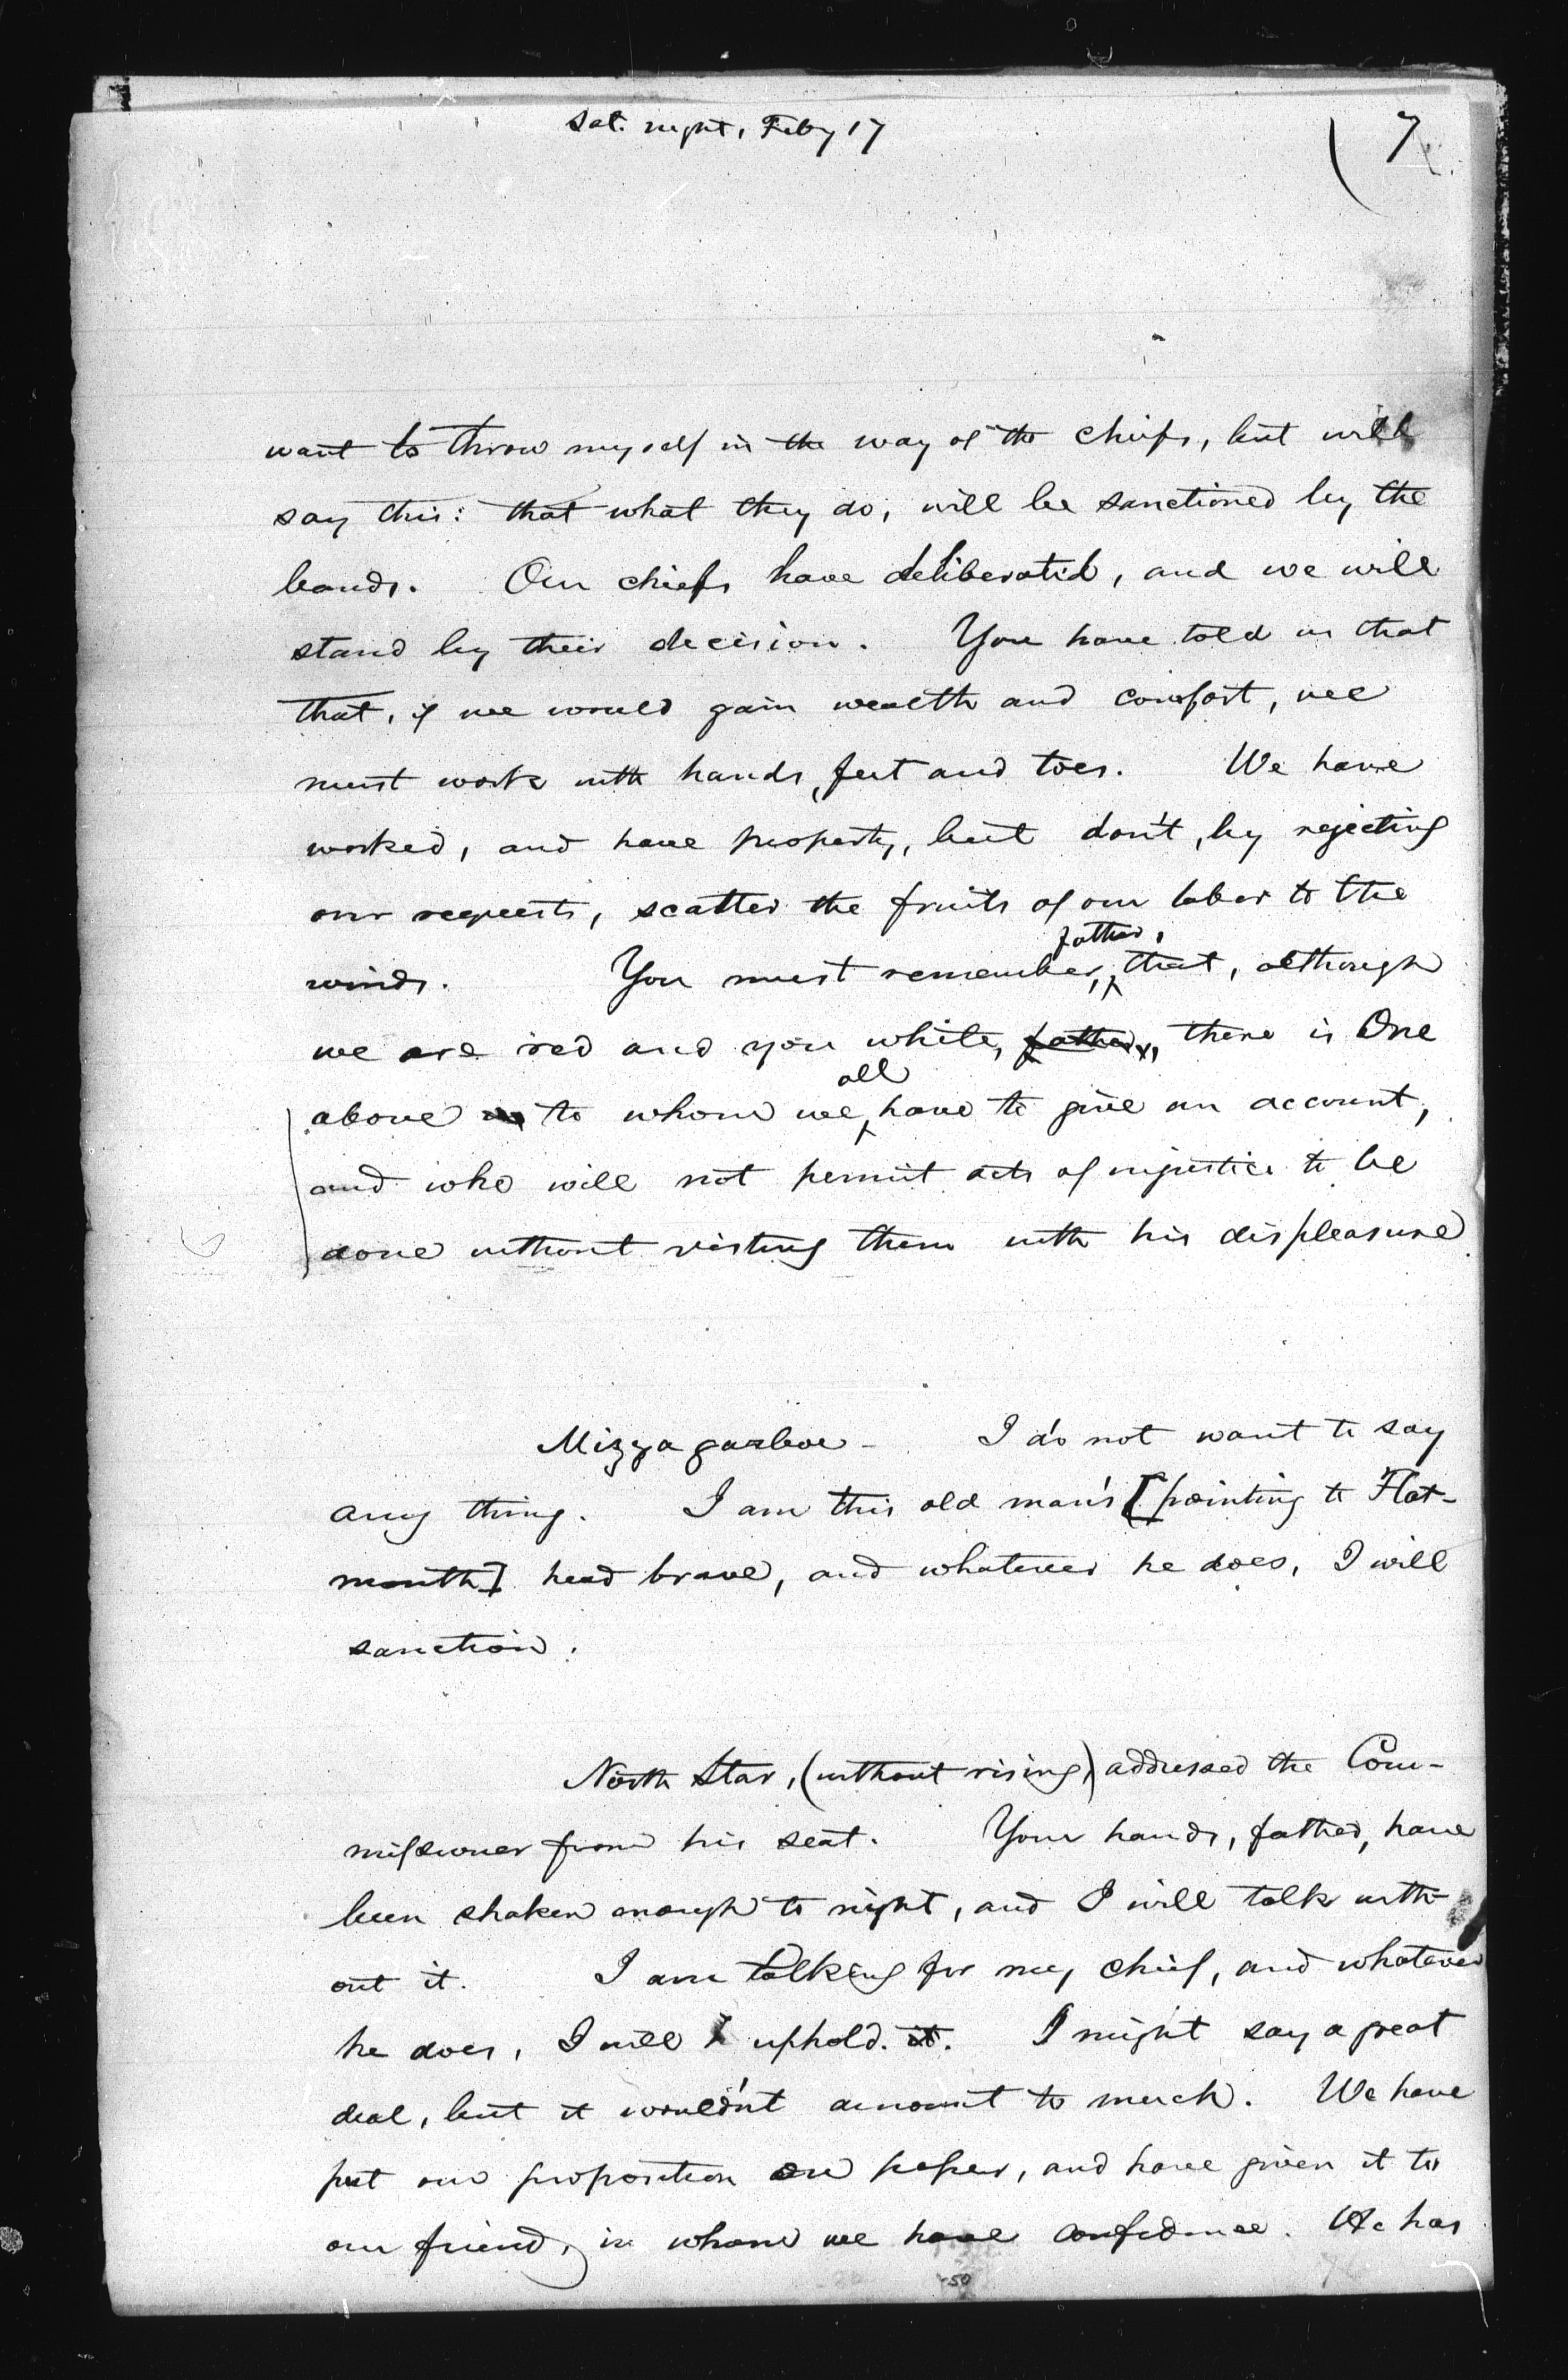 Sat. night, Feby 17
7
want to throw myself in the way of the chiefs, but will
say this: that what they do, will be sanctioned by the
bands. Our chiefs have deliberated, and we will
stand by their decision. You have told us that
that, if we would gain wealth and comfort, we
must work with hands, feet and toes. We have
worked, and have property, but don't, by rejecting
our requests, scatter the fruits of our labor to the
father,
winds. You must remember, that, although
we are red and you white, father, there is One
all
above to whom we have to give an account,
and who will not permit acts of injustice to be
done without visiting them with his displeasure
Mizzagazboe - I do not want to say
any thing. I am this old man's [pointing to Flat-
mouth] head brave, and whatever he does, I will
sanction.
North Star, (without rising,) addressed the Com-
missioner from his seat. Your hands, father, have
been shaken enough to night, and I will talk with-
out it. I am talking for my chief, and whatever
he does, I will uphold. it. I might say a great
deal, but it wouldn't amount to much. We have
put our proposition on paper, and have given it to
our friend, in whom we have confidence. He has
50